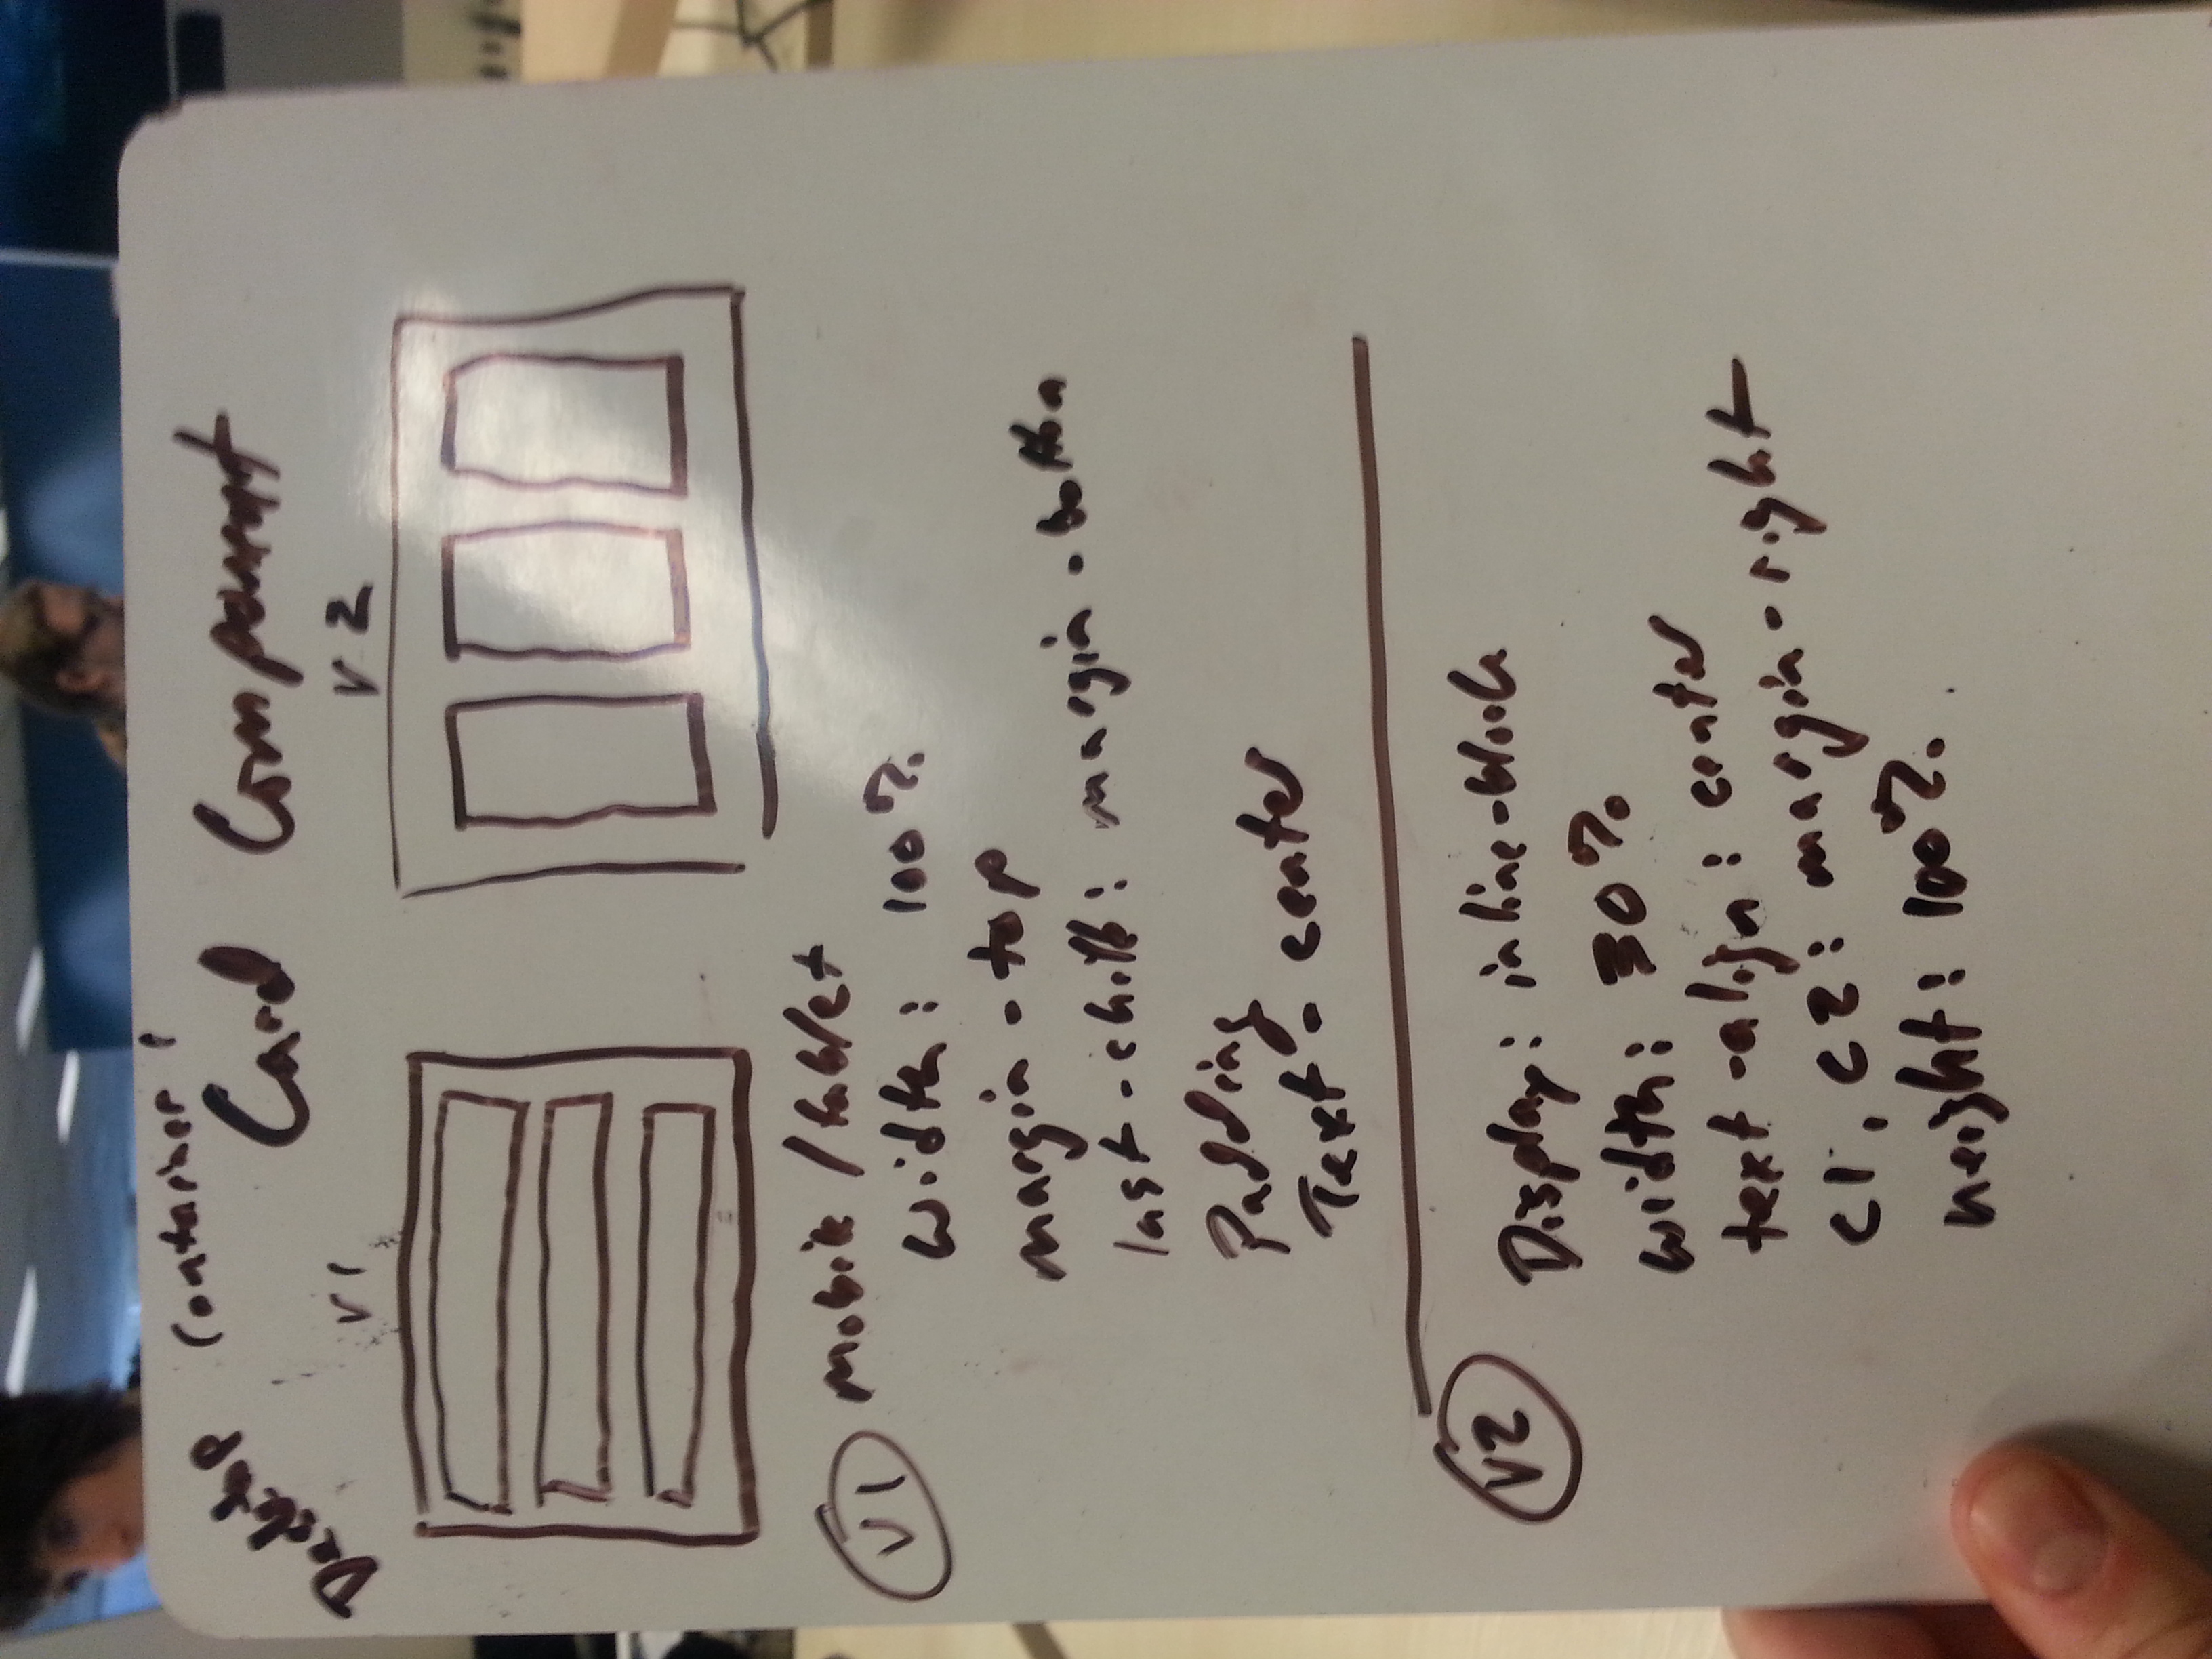 Desktop Container 1
Card Component
V1
V2
V1 Mobile/tablet
width: 100%
margin-top
last-child: margin-bottom
Padding
Text-center
V2 Display: inline-block
width: 30%
text-align: center
C1, C2: margin-right
height: 100%